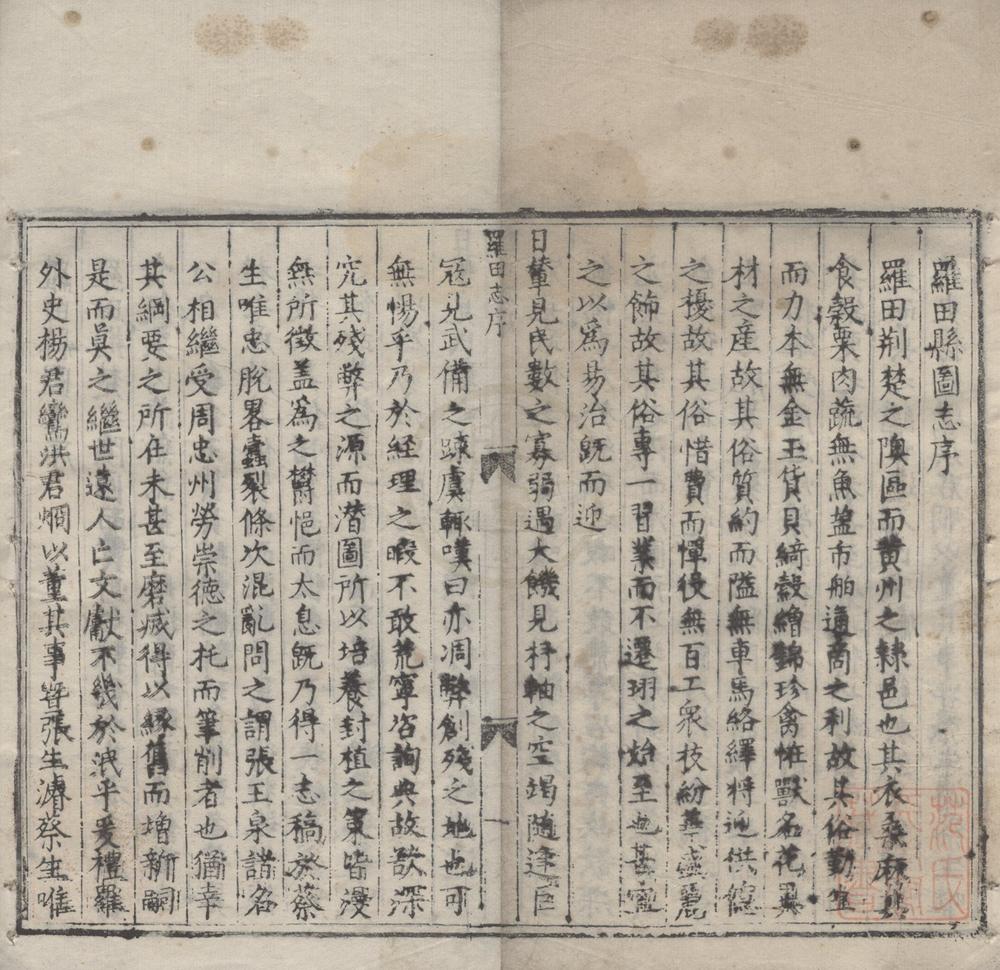 羅田縣圖志序
羅田荆楚之隩區而黄州之隷邑也其衣桑麻其
食穀粟肉蔬無魚盐市舶通商之利故其俗勤
而力本無金玉貨貝綺縠繒錦珍禽恠獸名花異
材之産故其俗質約而隘無車馬絡繹將迎供億
之擾故其俗惜費而憚役無百工衆技紛華盛麗
之飾故其俗專一習業而不遷珝之始至也甚
之以爲易治既而迎
日輦見民數之寡弱遇大饑見杼軸之空竭随逢巨
羅田志序
一
冦見武備之踈虞輙嘆曰亦凋弊創殘之地也可
無惕乎乃於経理之暇不敢荒寧咨詢典故欲深
究其殘弊之源而潜圖所以培養封植之策皆漫
無所徴盖爲之欝悒而太息既乃得一志稿於蔡
生唯忠脫畧蠹裂條次混亂問之謂張王泉諸名
公相繼受周忠州勞崇徳之托而筆削者也猶幸
其綱要之所在未甚至磨滅得以縁舊而増新嗣
是而眞之繼世遠人亡文獻不幾於泯乎爰禮羅
外史楊君鸞洪君烱以董其事皆張生濬蔡生唯